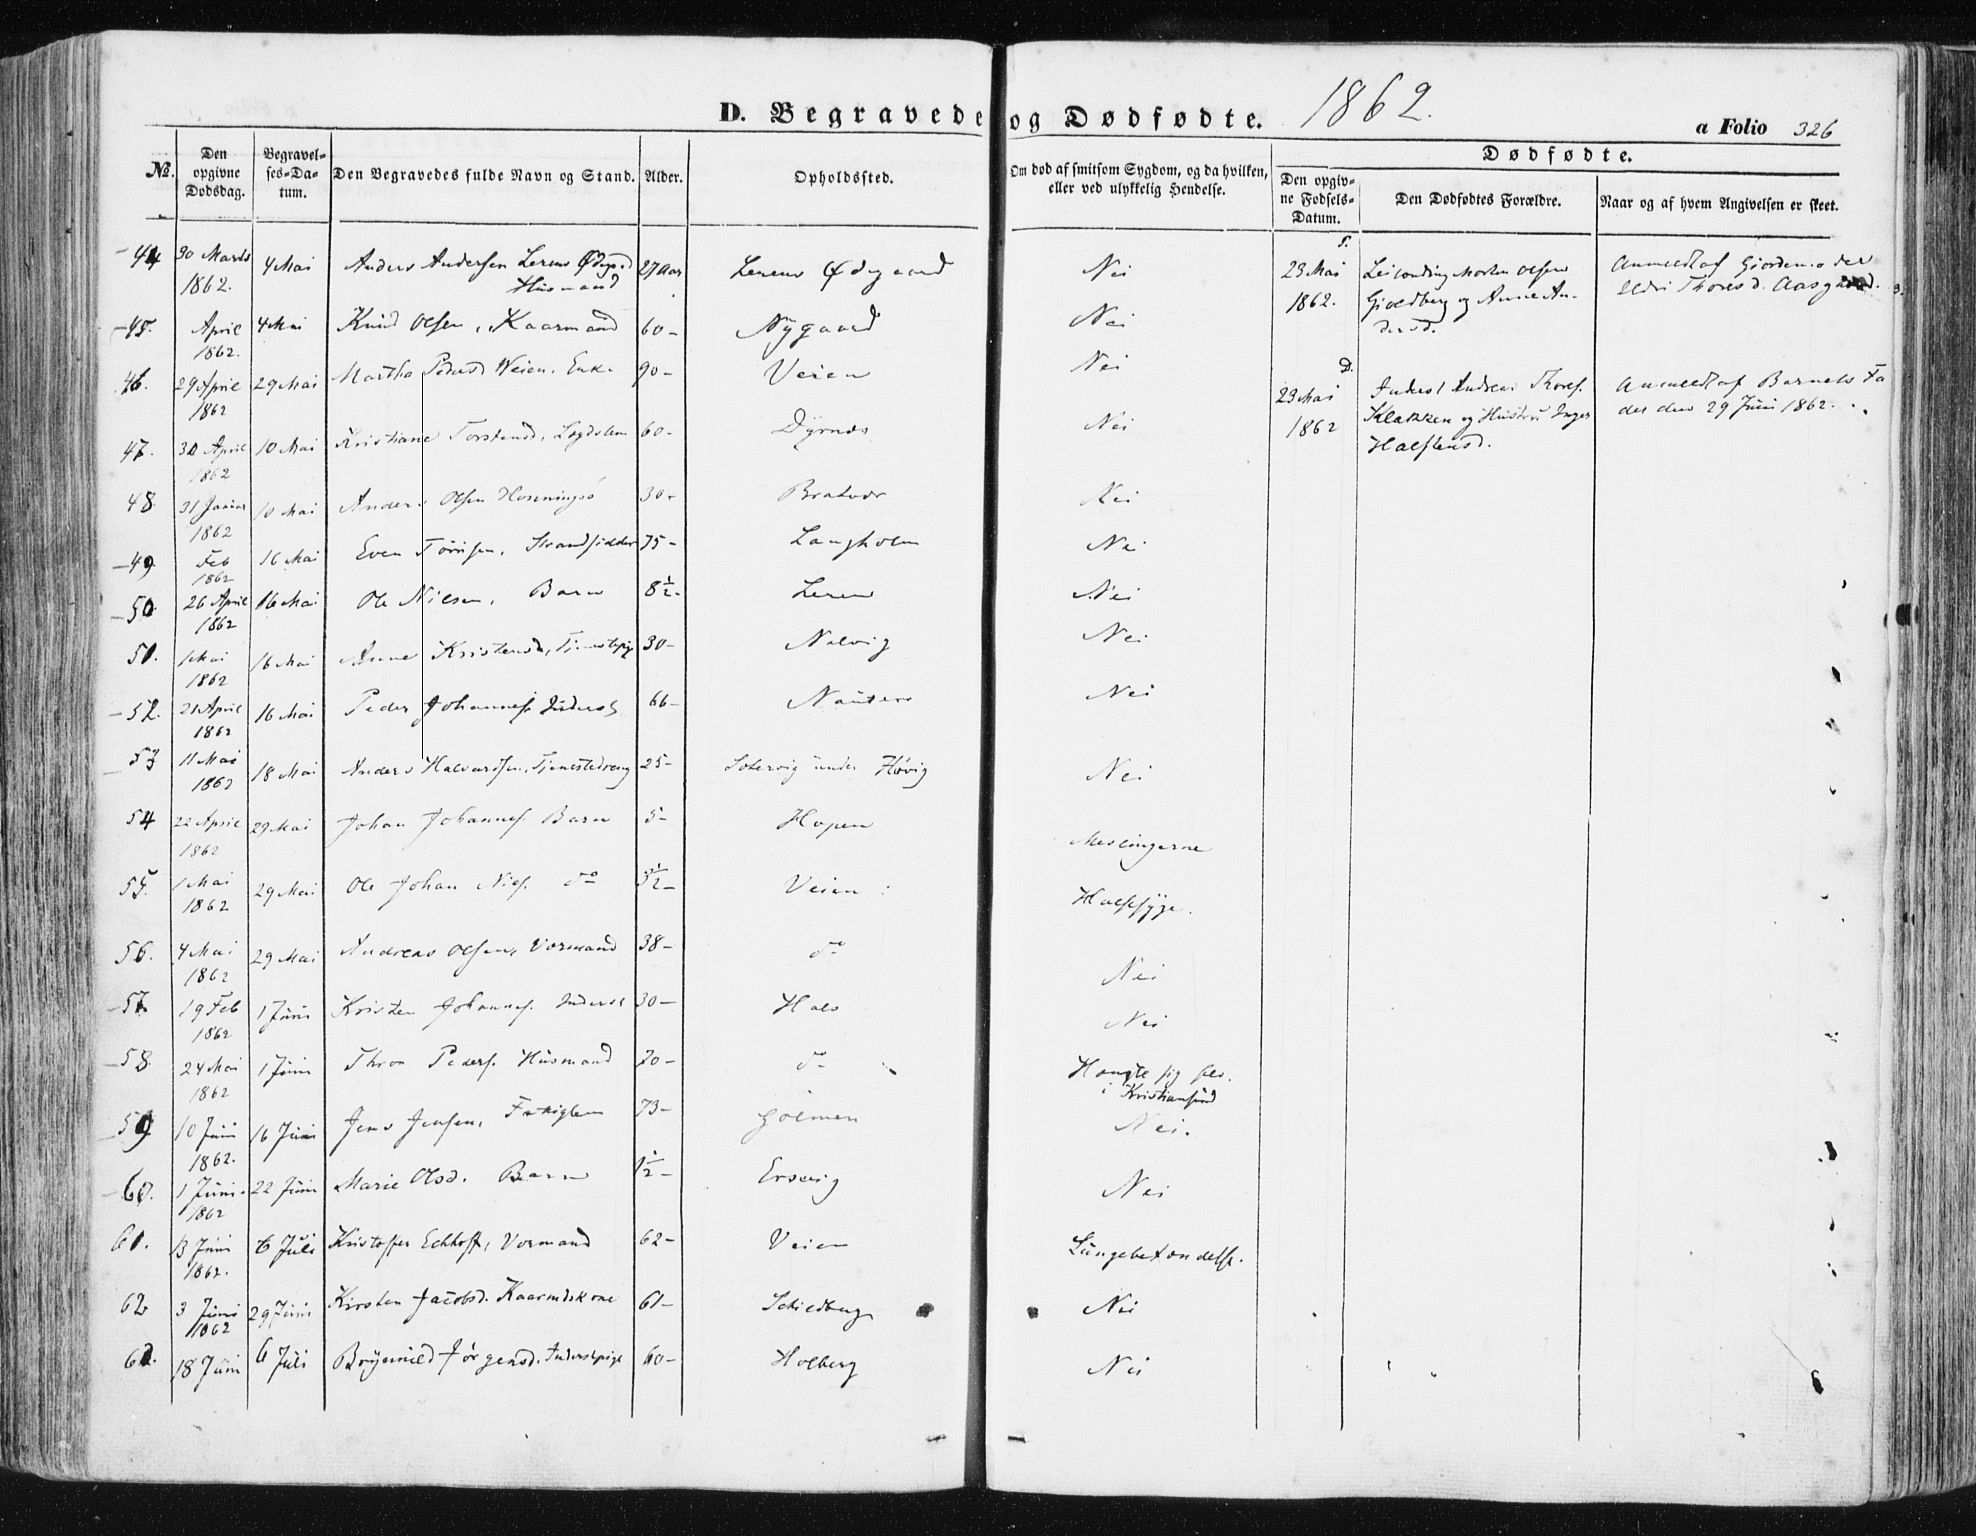 D. Begravede og Dødfødte. 1862.
a Folio 326
No.
Den opgivne Dødsdag.
Begravelses-Datum.
Den Begravedes fulde Navn og Stand.
Alder.
Opholdssted.
Om død af smitsom Sygdom, og da hvilken, eller ved ulykkelig Hendelse.
Dødfødte.
Den opgivne Fødsels-Datum.
Den Dødfødtes Forældre.
Naar og af hvem Angivelsen er skeet.
44 30 Marts 1862. 4 Mai Anders Andersen Lerens Ødeg. Husmand 27 Aar Lerens Ødegaard Nei
45. April 1862. 4 Mai Knud Olsen, Kaarmand 60 - Nygaard Nei
46. 29 April 1862 29 Mai Martha Pedersd Weien. Enke 90 - Veien Nei
47. 30 April 1862 10 Mai Kristiane Torstensd, Lægdslem 60 - Dyrnæs Nei
48. 31 Januar 1862 10 Mai Anders Olsen 30 - Bratvær Nei
49. Feb 1862 16 Mai Even Strandsidder 75 - Langholm Nei
50. 26 April 1862 16 Mai Ole Nilsen, Barn 8½ - Leren Nei
51. 1 Mai 1862 16 Mai Anne Kristensd, Tjenestepige 30 - Nalvig Nei
52. 21 April 1862 16 Mai Peder Johannes. Inderst 66 - Nei
53 11 Mai 1862 18 Mai Anders Halvorsen, Tjenestedreng 25 - under Høvig Nei
54 22 April 1862 29 Mai Johan Johannes. Barn 5 - Hopen Meslingerne
55. 1 Mai 1862 29 Mai Ole Johan Niels. do Veien Halssyge.
56. 4 Mai 1862 29 Mai Andreas Olsen, Vormand 38 - do Nei
57. 19 Feb 1862 1 Juni Kristen Johannes. Inderst 30 - Hals Nei
58. 24 Mai 1862 1 Juni Thron Peders. Husmand 20 - do Hængte sig selv. i Kristiansund
59 10 Juni 1862. 16 Juni Jens Jensen, Fattiglem 73 - Golmen Nei.
60. 1 Juni. 1862 22 Juni Marie Olsd. Barn ½ - Ersvig Nei
61. 13 Juni 1862. 6 Juli Kristoffer Eckhoff, Vormand 62 - Veien Lungebetændelse.
62 3 Juni 1862 29 Juni Kirsten Jacobsd. Kaarmdskone 61 - Nei
63. 18 Juni 6 Juli Brynnild Jørgensd. Inderstpige 60 - Holberg Nei
23 Mai 1862. Leilending Morten Olsen Gjeldberg og Anne Andersd.
Anmeldt af Gjordemoder Eldri Thoresd. Aasgaard.
D.
23 Mai 1862 Inderst Andreas Thores. Klakken og Hustru Inger Halstensd.
Anmeldt af Barnets Fader den 29 Juni 1862.